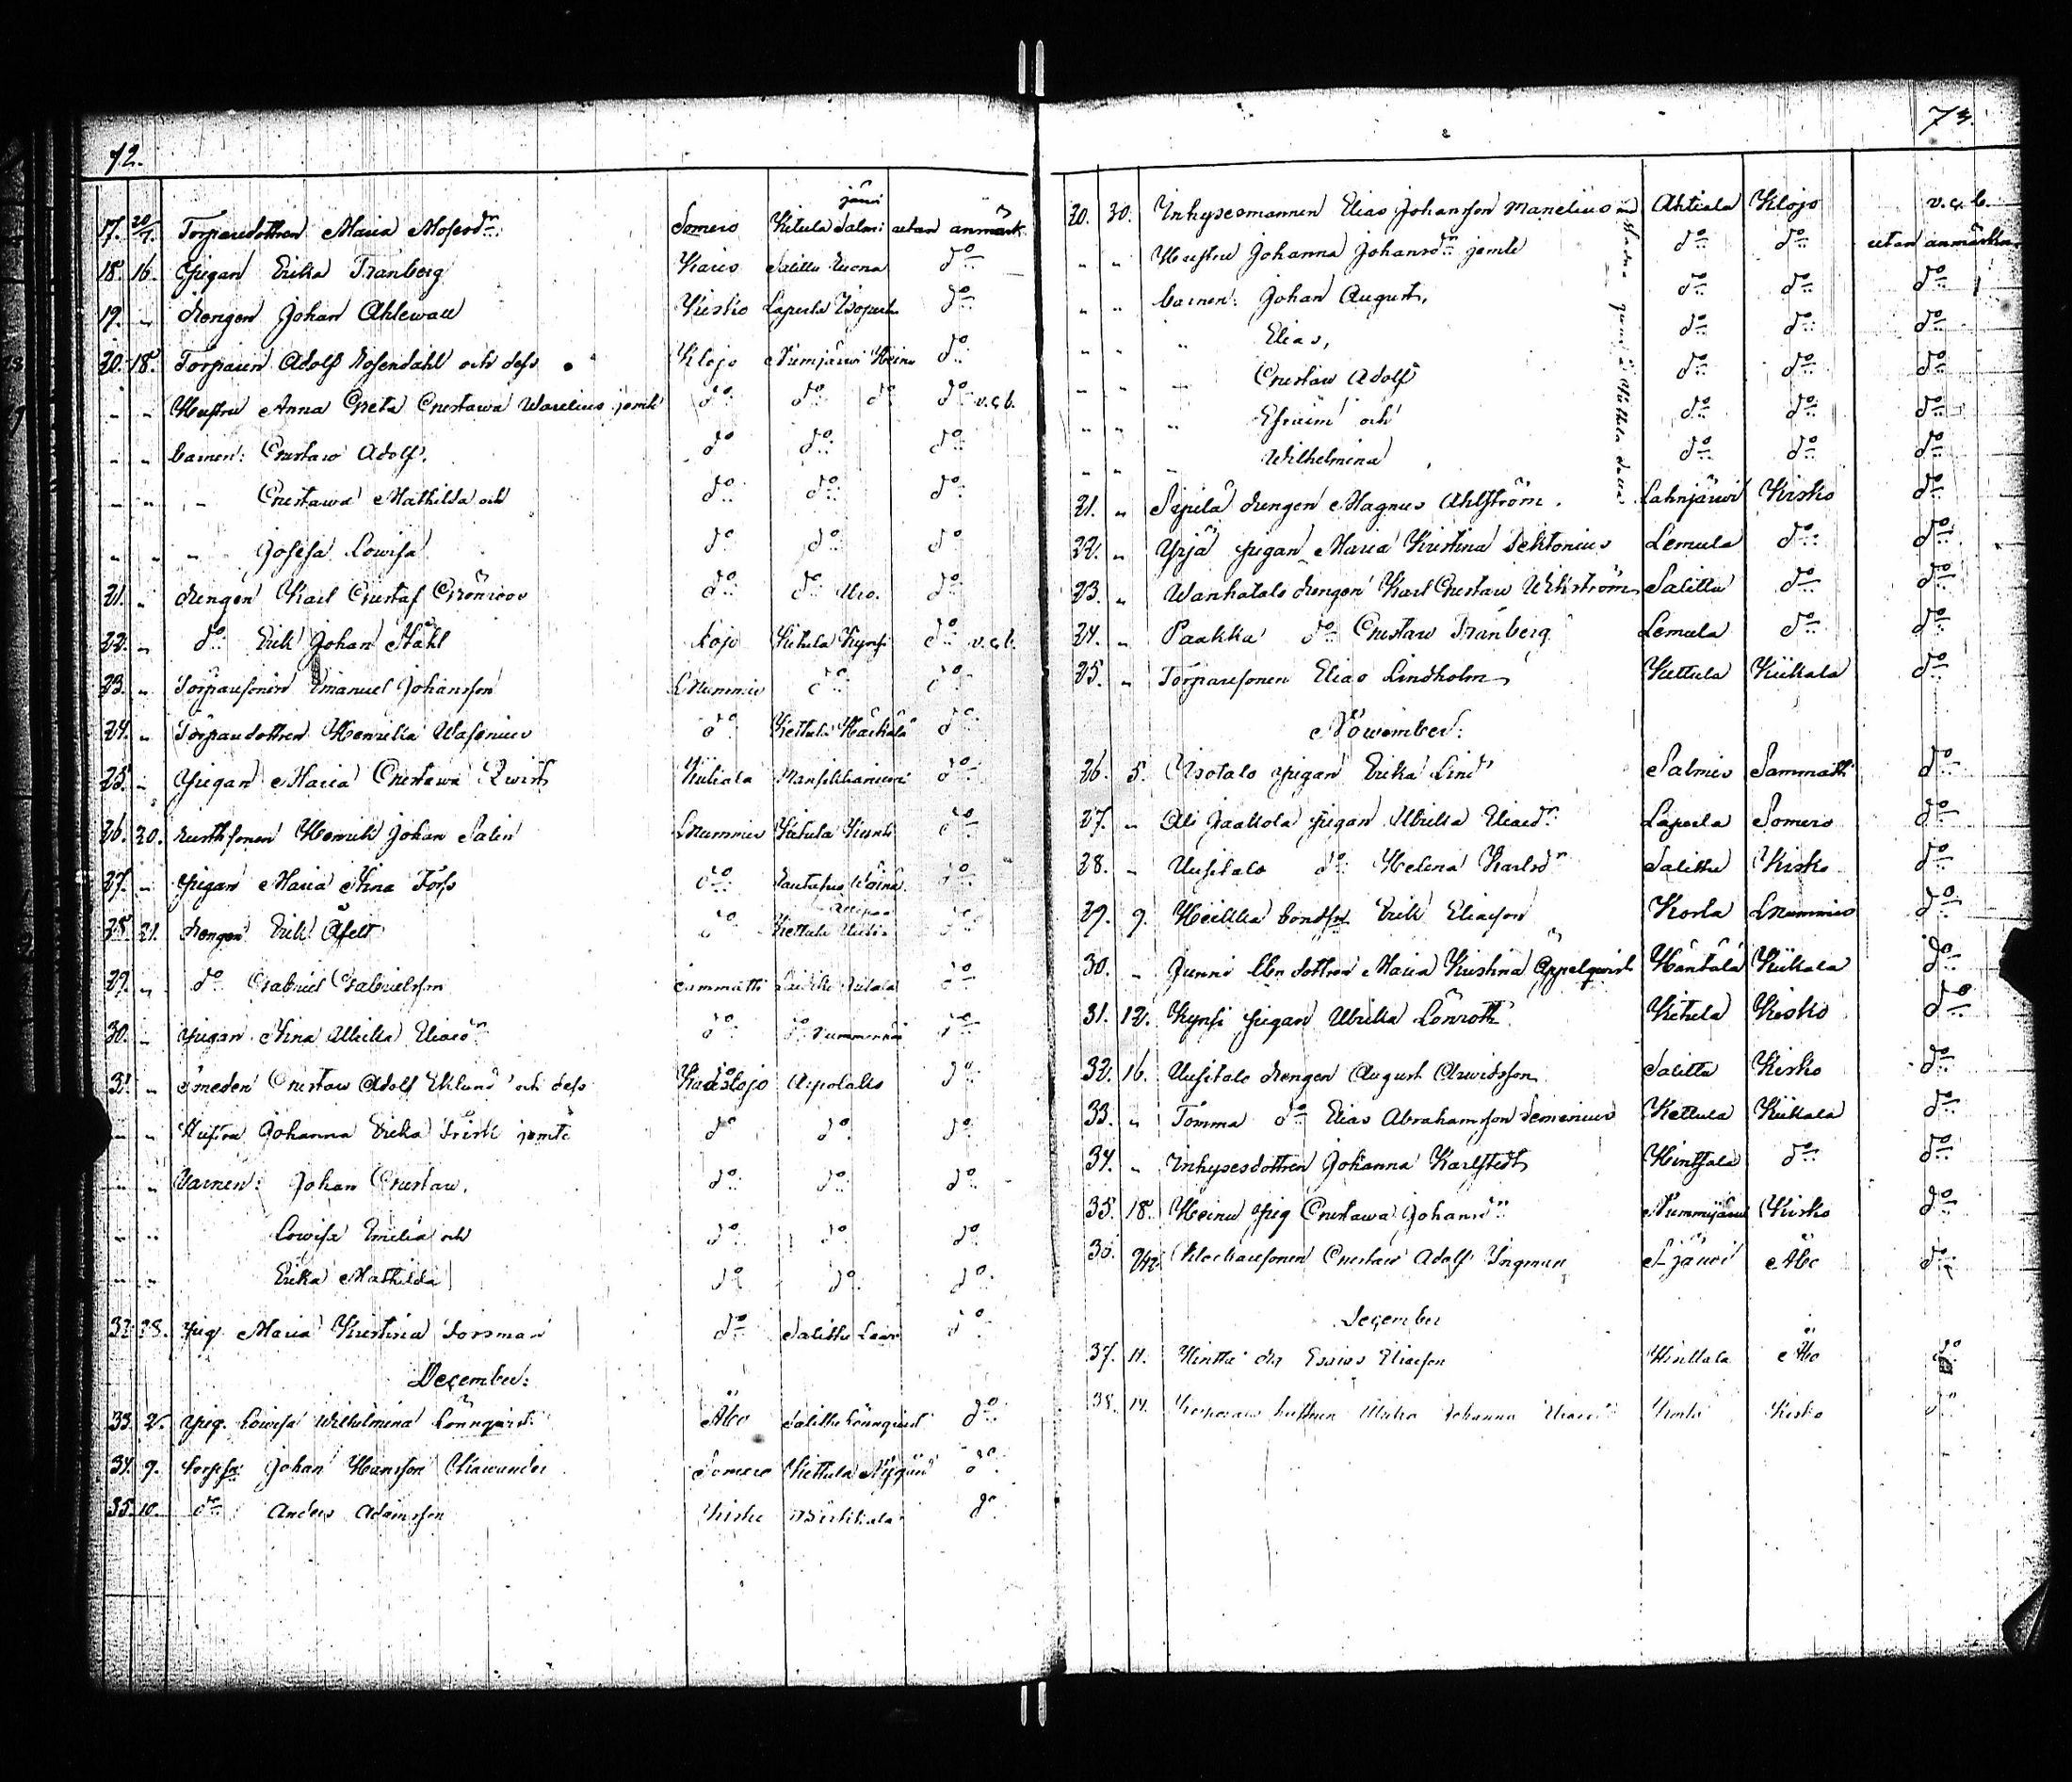 72.
17. 20/7. Torparedottren Maria Mosesdr. Somero Kitula Salmi järvi utan anmärk
18. 16. Pigan Erika Tranberg Karis Salittu d:o
19. " drengen Johan Ahlewall Kisko Laperla d:o
20. 18. Torparen Adolf Rosendahl och dess Klojo Numjärwi Heinu d:o
" " Hustru Anna Greta Gustawa Warelius jemte d:o d:o d:o d:o v.g.b.
" " barnen: Gustaw Adolf, d:o d:o d:o
" " " Gustawa Mathilda och d:o d:o d:o
" " " Josefa Lowisa d:o d:o d:o
21. " drengen Karl Gustaf Grönroos d:o d:o d:o
22. " d:o Erik Johan Ståhl Lojo Kitula Kynsi d:o v.g.b.
23. " Torparesonen Emanuel Johansson Nummis d:o d:o
24. " Torparedottren Henrika Wasenius d:o Kettula Härkälä d:o
25. " Pigan Maria Gustawa Qwist Kiikala d:o
26. 20. rusthsonen Henrik Johan Salin Nummis Kitula d:o
27. " Pigan Maria Stina Fors d:o d:o
28. 21. drengen Erik Åfelt d:o Kettula d:o
29. " d:o Gabriel Gabrielsson Sammatti d:o
30. " pigan Stina Ulrika Eliasdr d:o d:o d:o
31. " Smeden Gustaw Adolf Eklund och dess Karislojo Aijolaks d:o
" " Hustru Johanna Erika Frisk jemte d:o d:o d:o
" " Barnen: Johan Gustaw, d:o d:o d:o
" " Lowisa Emelia och d:o d:o d:o
" " Erika Mathilda d:o d:o d:o
32. 28. Pig. Maria Kristina Forsman d:o Salittu d:o
December:
33. 2. Pig. Lowisa Wilhelmina Lönnqvist Åbo Salittu Lönnqvist d:o
34. 9. Johan Hansson Somero Kettula Nygård d:o
35. 10. d:o Anders Adamsson Kisko d:o
73.
20. 30. Inhysesmannen Elias Johansson Manelius Ahtiala Klojo v.g.b.
" " Hustru Johanna Johansdr jemte d:o d:o utan anmärkn.
" " barnen: Johan August, d:o d:o d:o
" " " Elias, d:o d:o d:o
" " " Gustaw Adolf d:o d:o d:o
" " " Efraim och d:o d:o d:o
" " " Wilhelmina d:o d:o d:o
21. " Sipilä drengen Magnus Ahlström. Lahnjärwi Kisko d:o
22. " Yrjä pigan Maria Kristina Sektonius Lemula d:o d:o
23. " Wanhatalo drengen Karl Gustaw Wikström Salittu d:o d:o
24. " Paakka d:o Gustaw Tranberg Lemula d:o d:o
25. " Torparesonen Elias Lindholm Kettula Kiikala d:o
November:
26. 5. Isotalo pigan Erika Lind Salmis Sammatti d:o
27. " Ali Jaakkola pigan Ulrika Eliasdr Laperla Somero d:o
28. " Uusitalo d:o Helena Karlsdr Salittu Kisko d:o
29. 9. Heikkilä bondsn Erik Eliasson Korla Nummis d:o
30. " Junni dottren Maria Kristina Äppelqwist Häntälä Kiikala d:o
31. 12. Kynsi pigan Ulrika Lönroth Kitula Kisko d:o
32. 16. Uusitalo drengen August Arwidsson Salittu Kisko d:o
33. " Tomma d:o Elias Abrahamsson Semenius Kettula Kiikala d:o
34. " Inhysesdottren Johanna Karlstedt Hintsala d:o d:o
35. 18. Heinu pig Gustawa Johansdr Nummijärwi Kisko d:o
36. 24. Klockaresonen Gustaw Adolf Ingman S-järwi Åbo d:o
December
37. 11. Hintta dr Esaias Eliasson Hintsala Åbo d:o
38. 14. Ulrika Johanna Kisko d:o